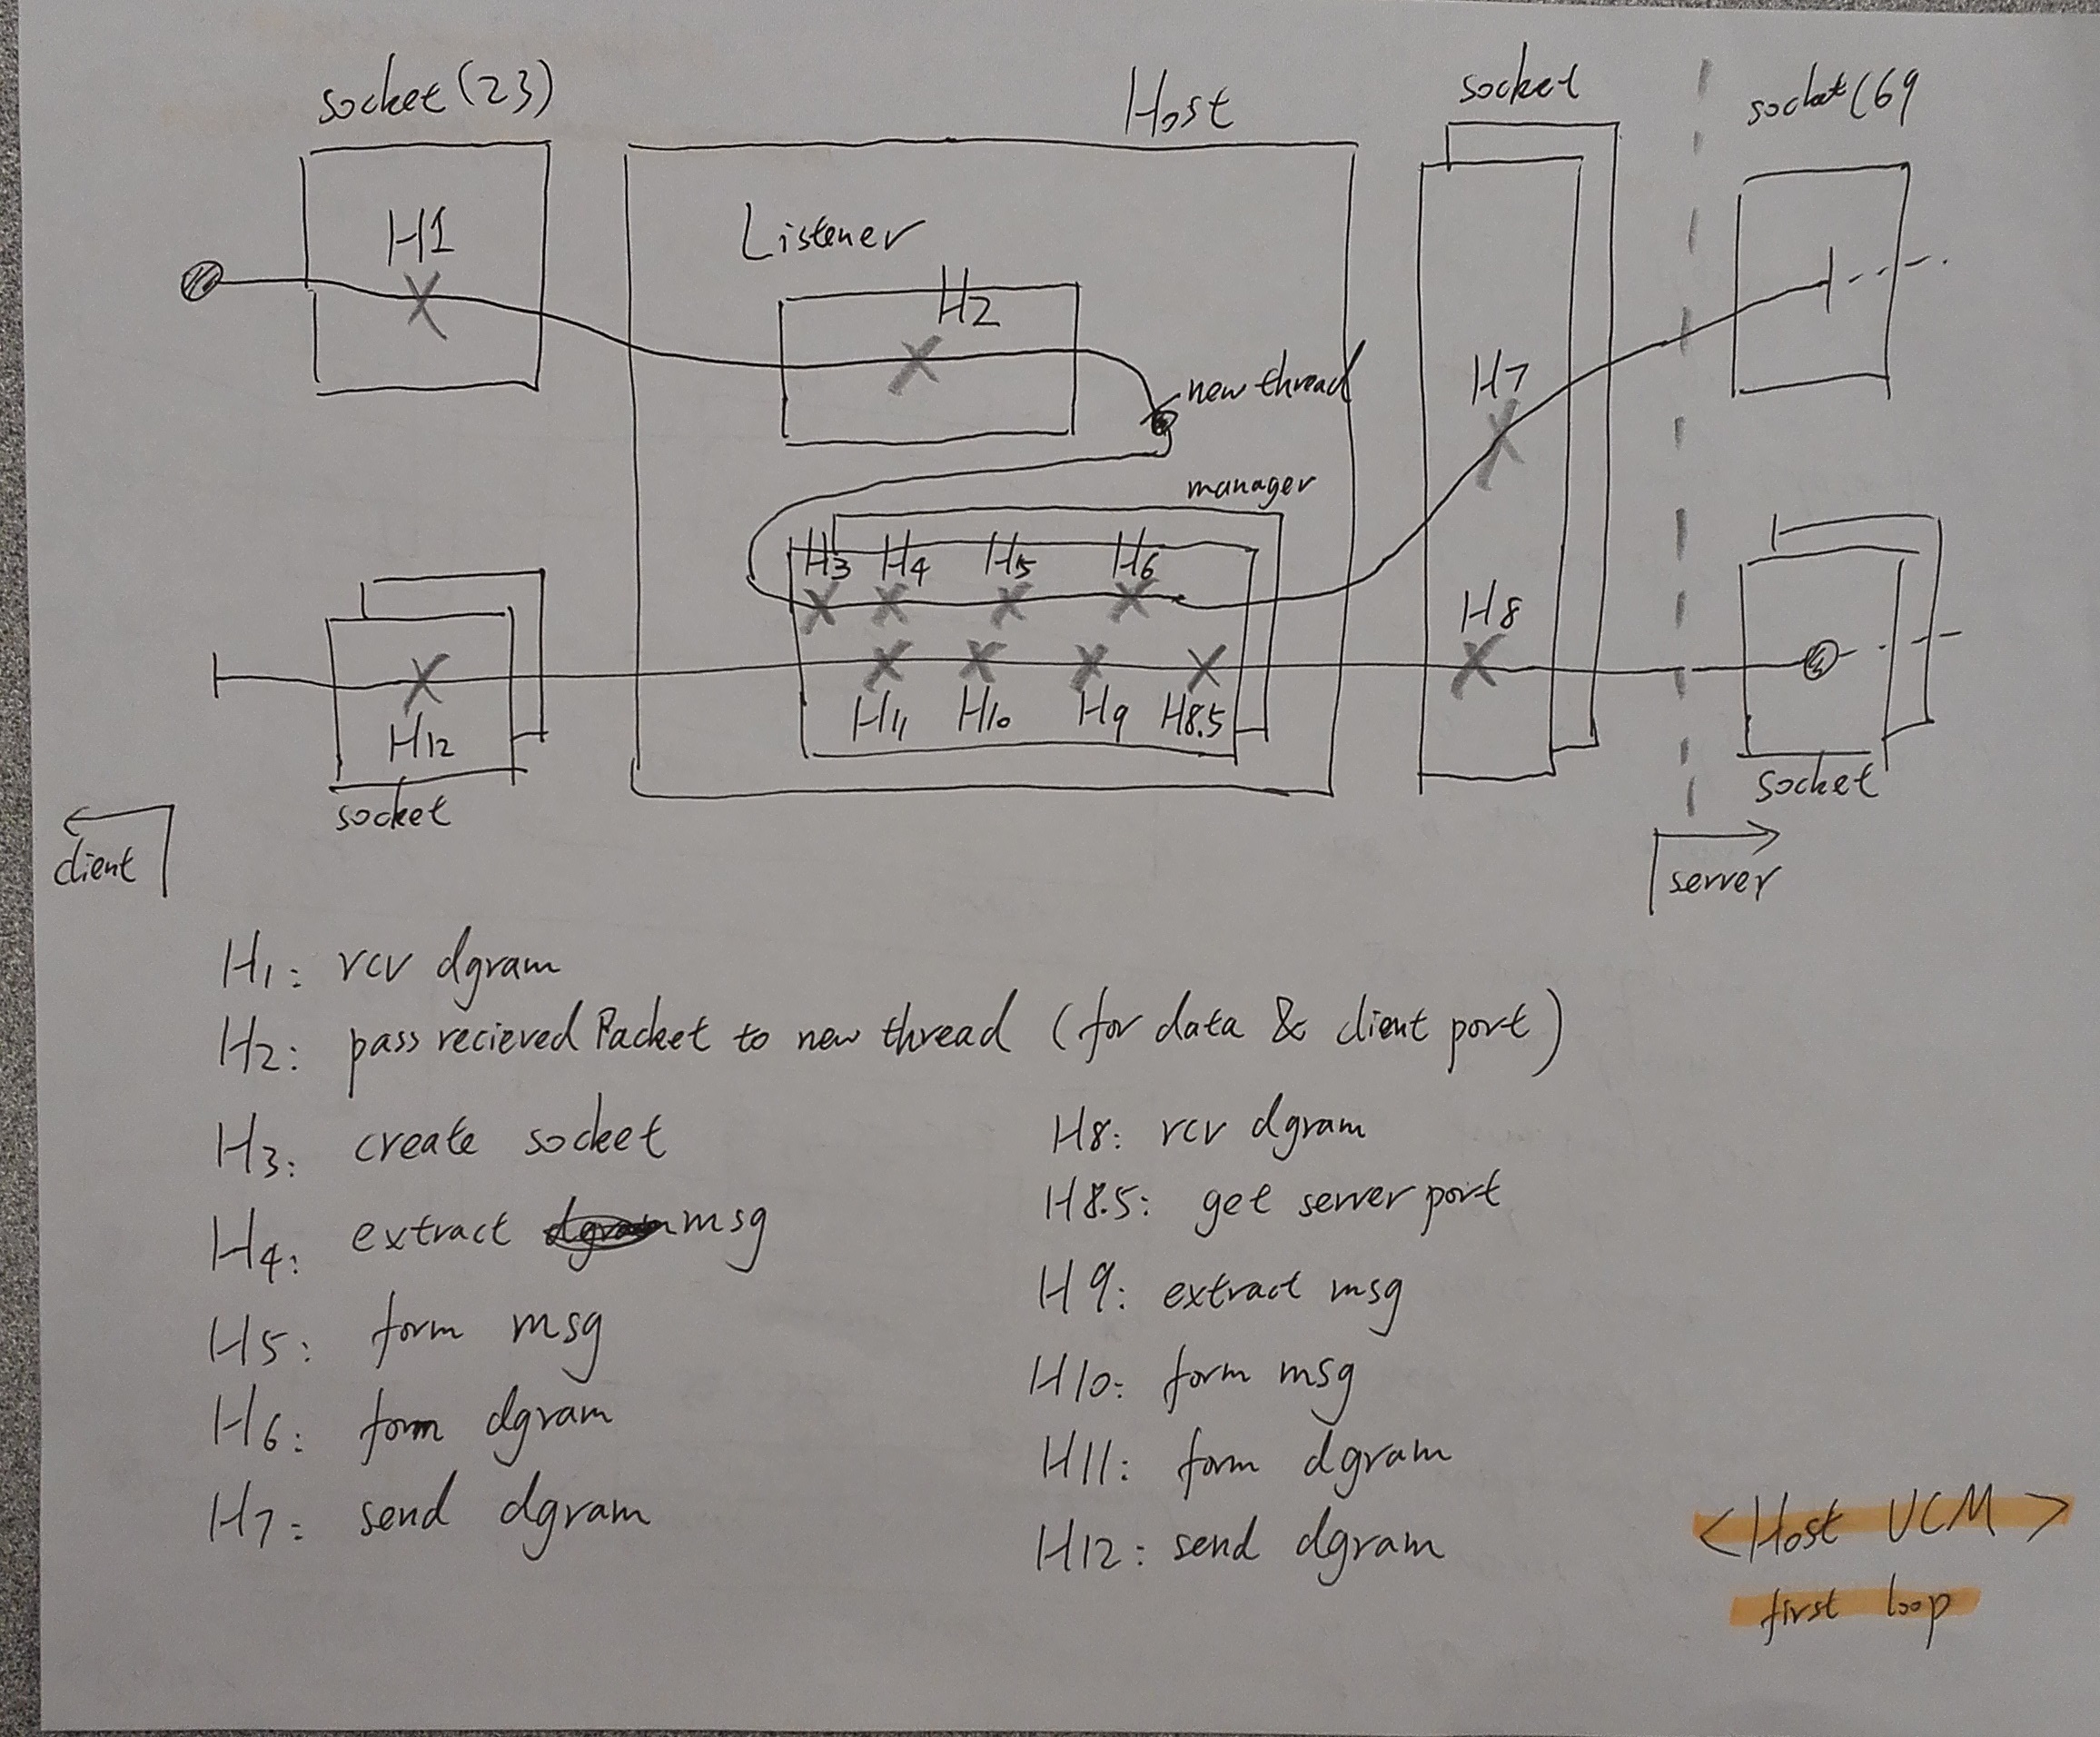 socket (23)
Host
socket
socket (69
H1
Listener
H2
new thread
H7
manager
H3 H4 H5 H6
H8
H11 H10 H9 H8.5
H12
socket
socket
client
server
H1: rcv dgram
H2: pass recieved Packet to new thread (for data & client port)
H3: create socket
H4: extract msg
H5: form msg
H6: form dgram
H7: send dgram
H8: rcv dgram
H8.5: get server port
H9: extract msg
H10: form msg
H11: form dgram
H12: send dgram
<Host UCM>
first loop